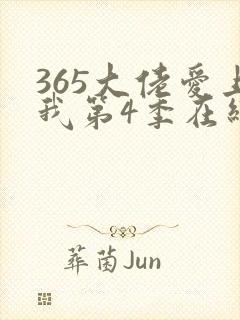 365大佬爱上
我第4季在线
葬茵Jun